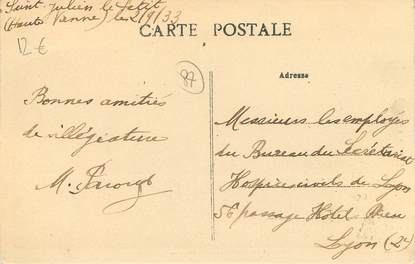 Saint-Julien le Petit
(Haute Vienne) le 2/9/33
12 €
CARTE POSTALE
87
Adresse
Bonnes amitiés
de villégiature
M.
Messieurs les employés
du Bureau du Secrétariat
Hospices civils de Lyon
56 passage Hôtel Dieu
Lyon (2e)